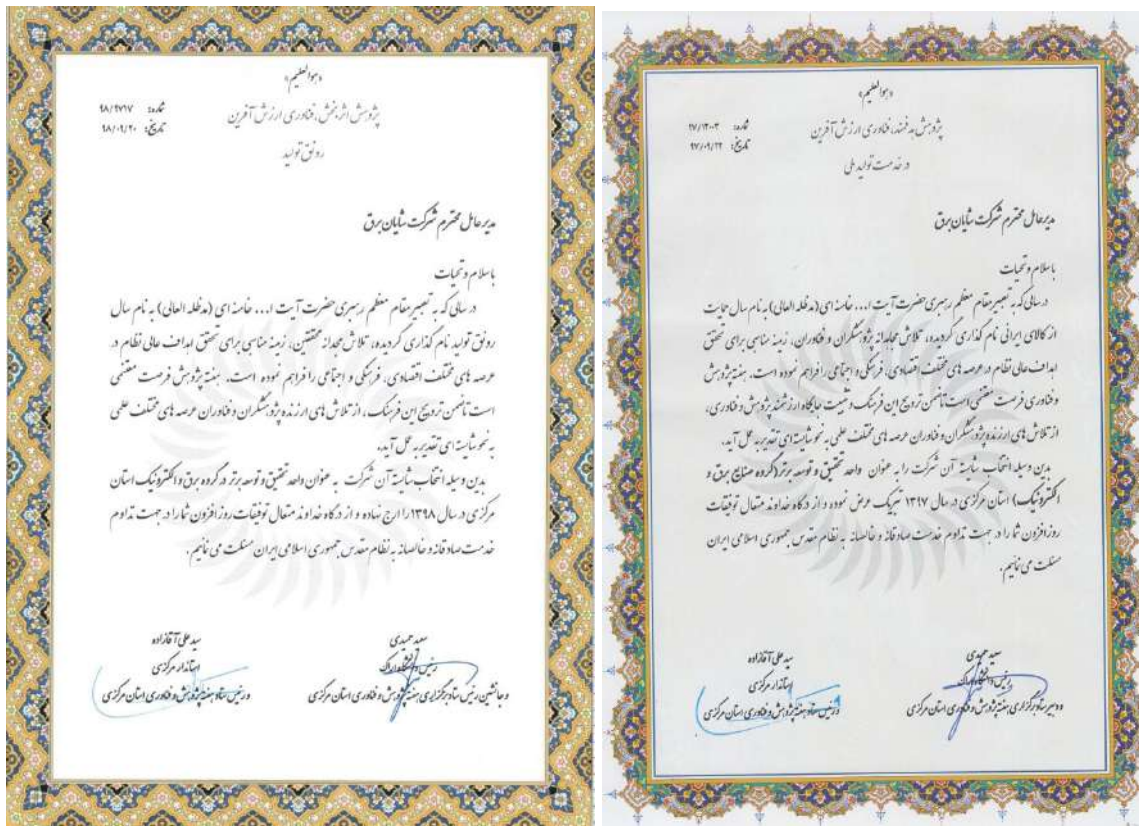 «هوالعلیم»
پژوهش اثربخش، فناوری ارزش آفرین
رونق تولید
شماره: ۹۸/۹۷۱۷
تاریخ: ۹۸/۰۹/۲۰
مدیرعامل محترم شرکت شایان برق
باسلام و تحیات
در سالی که به تعبیر مقام معظم رهبری حضرت آیت ا... خامنه ای (مدظله العالی) به نام سال
رونق تولید نام گذاری گردیده، تلاش مجدانه محققین، زمینه مناسبی برای تحقق اهداف عالی نظام در
عرصه های مختلف اقتصادی، فرهنگی و اجتماعی را فراهم نموده است. هفته پژوهش فرصت مغتنمی
است تا ضمن ترویج این فرهنگ، از تلاش های ارزنده پژوهشگران و فناوران عرصه های مختلف علمی
به نحو شایسته ای تقدیر به عمل آید.
بدین وسیله انتخاب شایسته آن شرکت به عنوان واحد تحقیق و توسعه برتر در گروه برق و الکترونیک استان
مرکزی در سال ۱۳۹۸ را ارج نهاده و از درگاه خداوند متعال توفیقات روزافزون شما را در جهت تداوم
خدمت صادقانه و خالصانه به نظام مقدس جمهوری اسلامی ایران مسئلت می نمایم.
سعید حمیدی
رئیس دانشگاه اراک
و جانشین رئیس ستاد برگزاری هفته پژوهش و فناوری استان مرکزی
سید علی آقازاده
استاندار مرکزی
و رئیس ستاد هفته پژوهش و فناوری استان مرکزی
«هوالعلیم»
پژوهش هدفمند، فناوری ارزش آفرین
در خدمت تولید ملی
شماره: ۹۷/۱۳۰۰۳
تاریخ: ۹۷/۰۹/۲۲
مدیرعامل محترم شرکت شایان برق
باسلام و تحیات
در سالی که به تعبیر مقام معظم رهبری حضرت آیت ا... خامنه ای (مدظله العالی) به نام سال حمایت
از کالای ایرانی نام گذاری گردیده، تلاش مجدانه پژوهشگران و فناوران، زمینه مناسبی برای تحقق
اهداف عالی نظام در عرصه های مختلف اقتصادی، فرهنگی و اجتماعی را فراهم نموده است. هفته پژوهش
و فناوری فرصت مغتنمی است تا ضمن ترویج این فرهنگ و تثبیت جایگاه ارزشمند پژوهش و فناوری،
از تلاش های ارزنده پژوهشگران و فناوران عرصه های مختلف علمی به نحو شایسته ای تقدیر به عمل آید.
بدین وسیله انتخاب شایسته آن شرکت را به عنوان واحد تحقیق و توسعه برتر (گروه صنایع برق و
الکترونیک) استان مرکزی در سال ۱۳۹۷ تبریک عرض نموده و از درگاه خداوند متعال توفیقات
روزافزون شما را در جهت تداوم خدمت صادقانه و خالصانه به نظام مقدس جمهوری اسلامی ایران
مسئلت می نمایم.
سعید حمیدی
رئیس دانشگاه اراک
و دبیر ستاد برگزاری هفته پژوهش و فناوری استان مرکزی
سید علی آقازاده
استاندار مرکزی
و رئیس ستاد هفته پژوهش و فناوری استان مرکزی